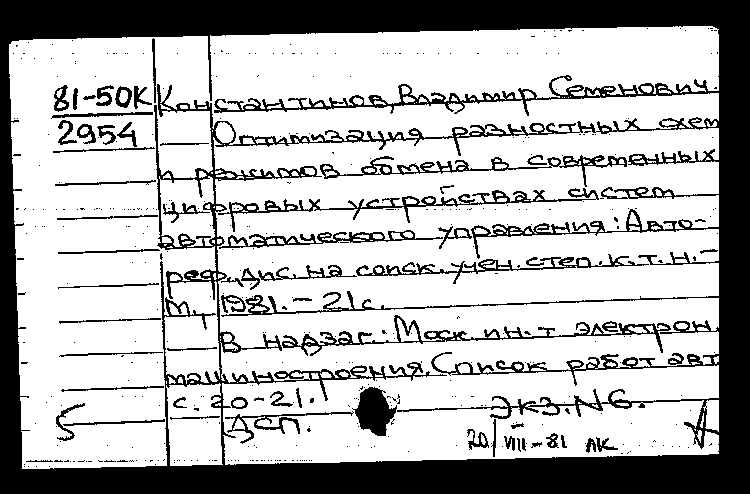 81-50К Константинов, Владимир Семенович.
2954 Оптимизация разностных схем
и режимов обмена в современных
цифровых устройствах систем
автоматического управления: Авто-
реф. дис. на соиск. учен. степ. к.т.н.-
М., 1981.-21с.
В надзаг.: Моск. ин-т электрон.
машиностроения. Список работ авт
с. 20-21.
ДСП. Экз. N6.
5 20/VIII-81 ЛК